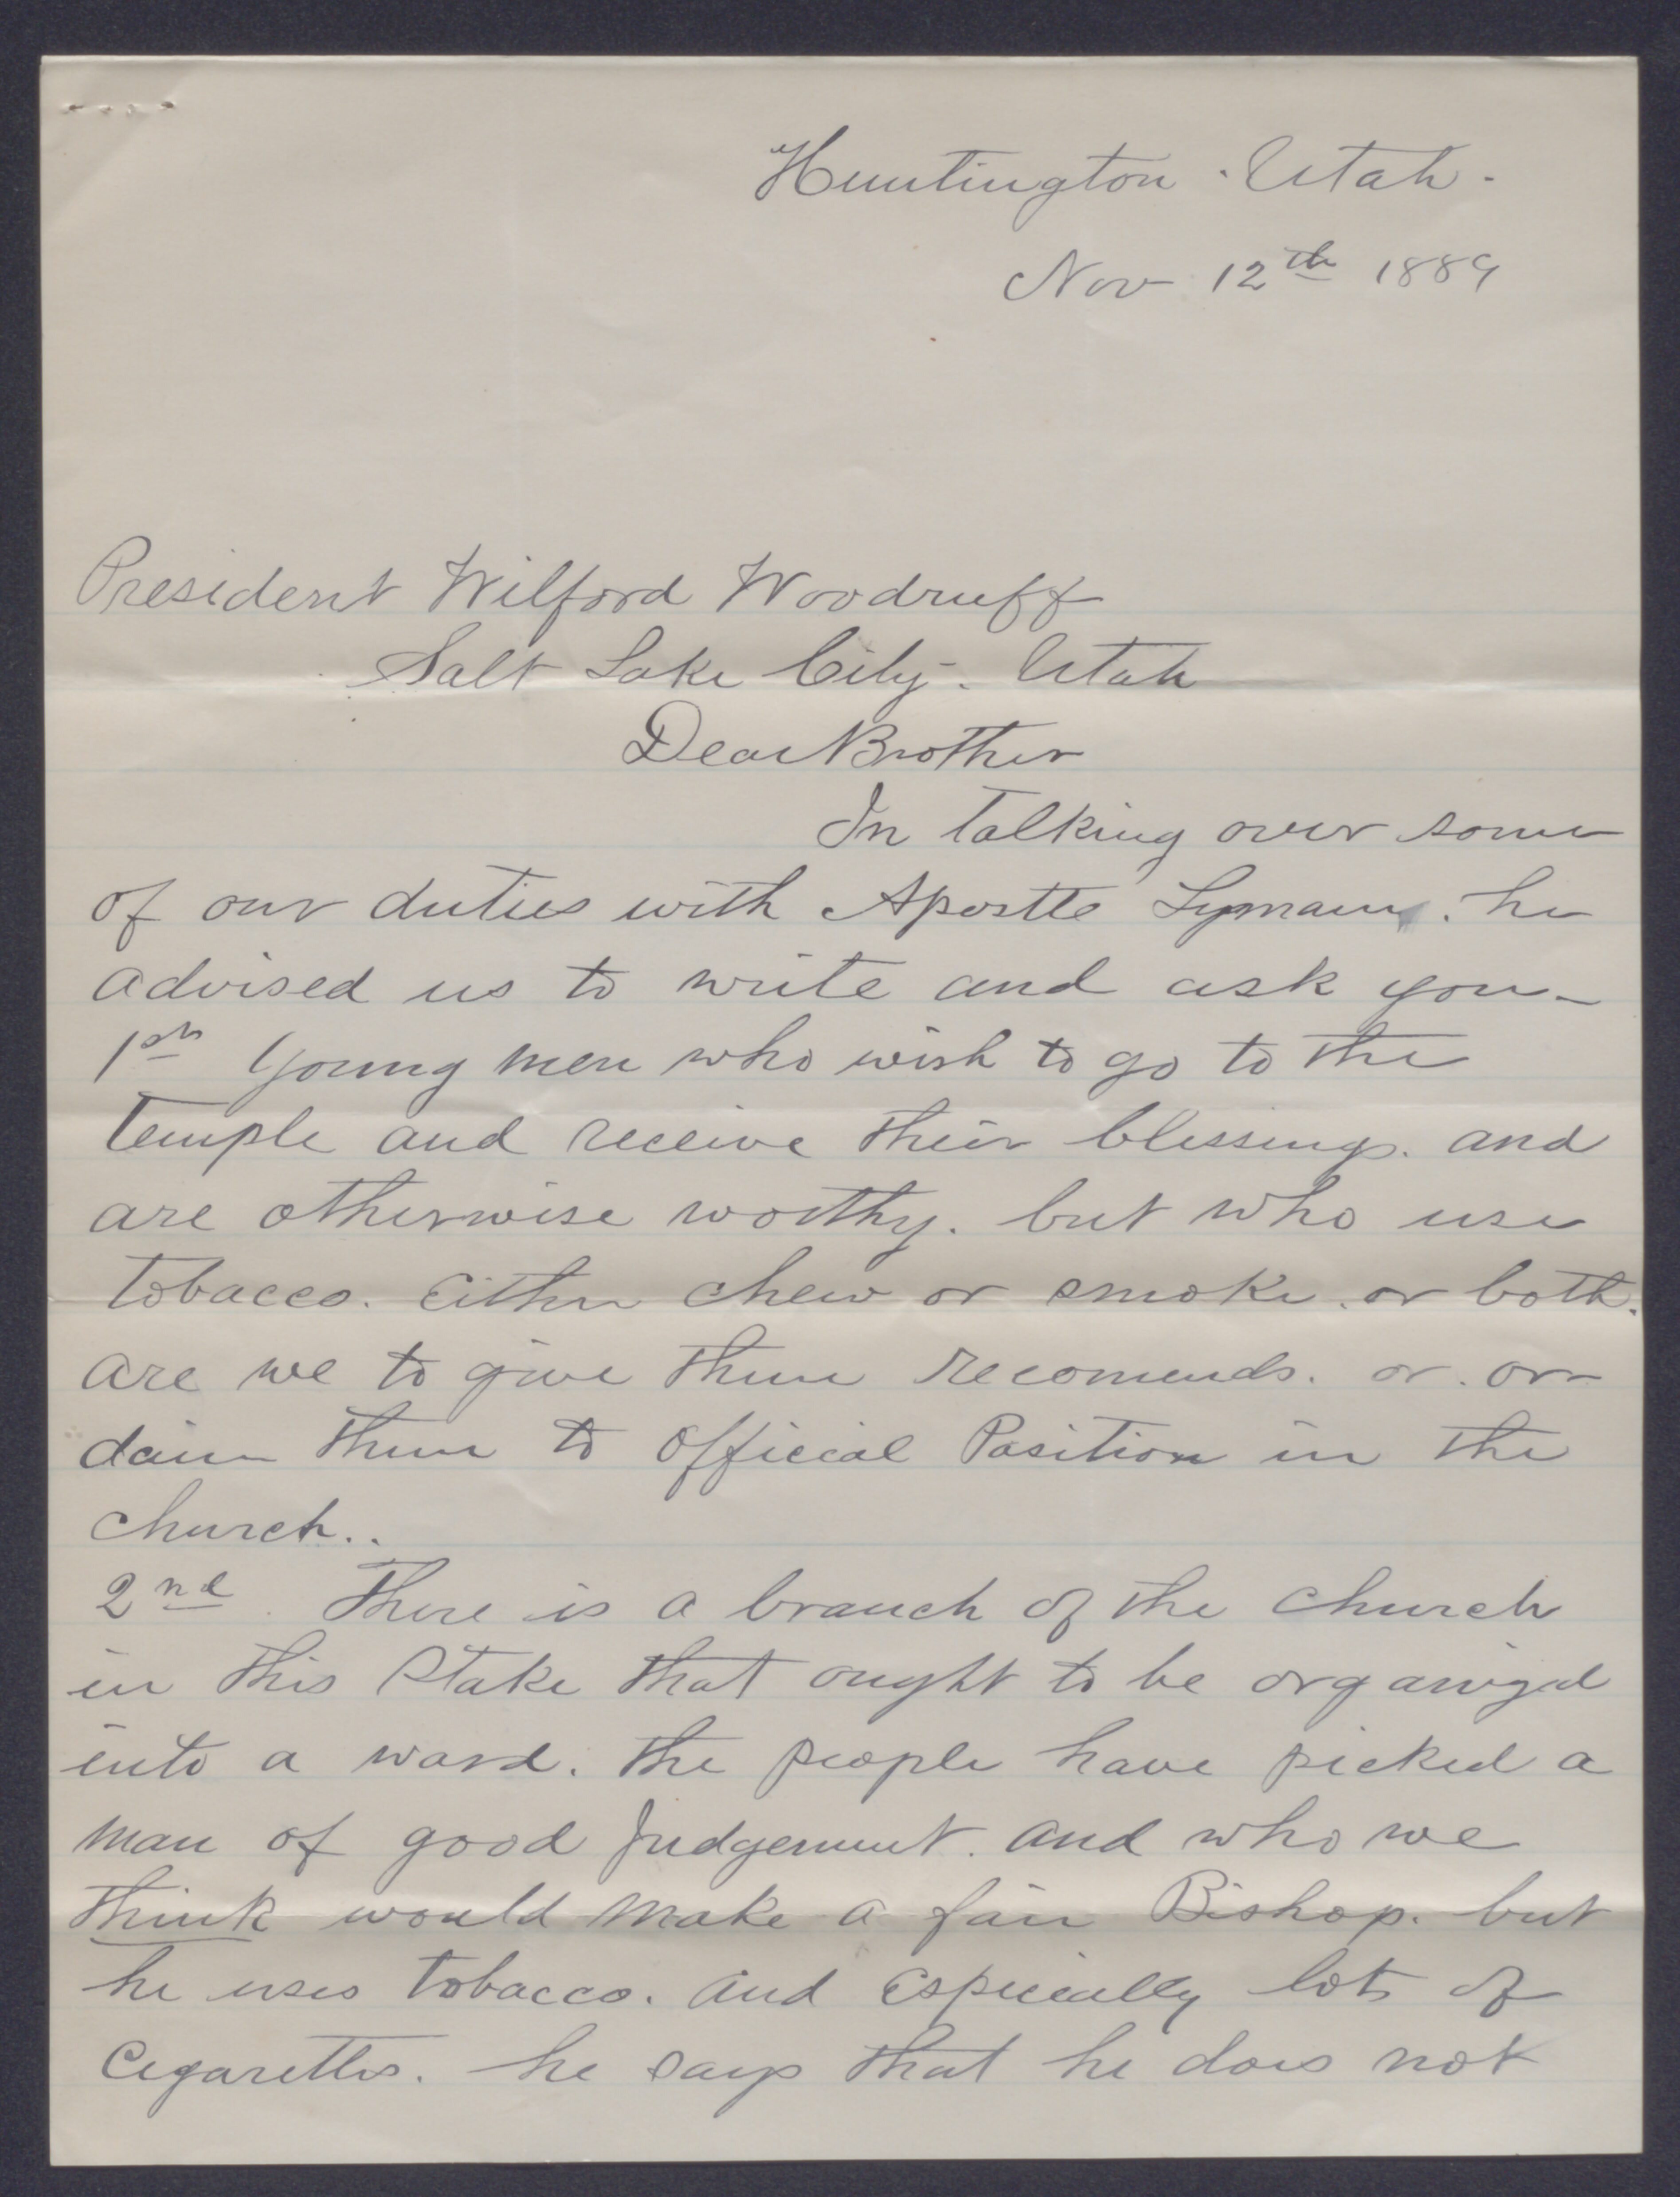 Huntington. Utah.
Nov 12th 1889
President Wilford Woodruff
Salt Lake City. Utah
Dear Brother
In talking over some
of our duties with Apostle Lyman. he
advised us to write and ask you-
1st Young men who wish to go to the
temple and receive their blessings. and
are otherwise worthy. but who use
tobacco. either chew or smoke. or both.
are we to give them recomends. or. or-
dain them to official Position in the
church..
2nd There is a branch of the church
in this Stake that ought to be organized
into a ward. the people have picked a
man of good judgement. and who we
think would make a fair Bishop. but
he uses tobacco. and especially lots of
cigarettes. he says that he does not